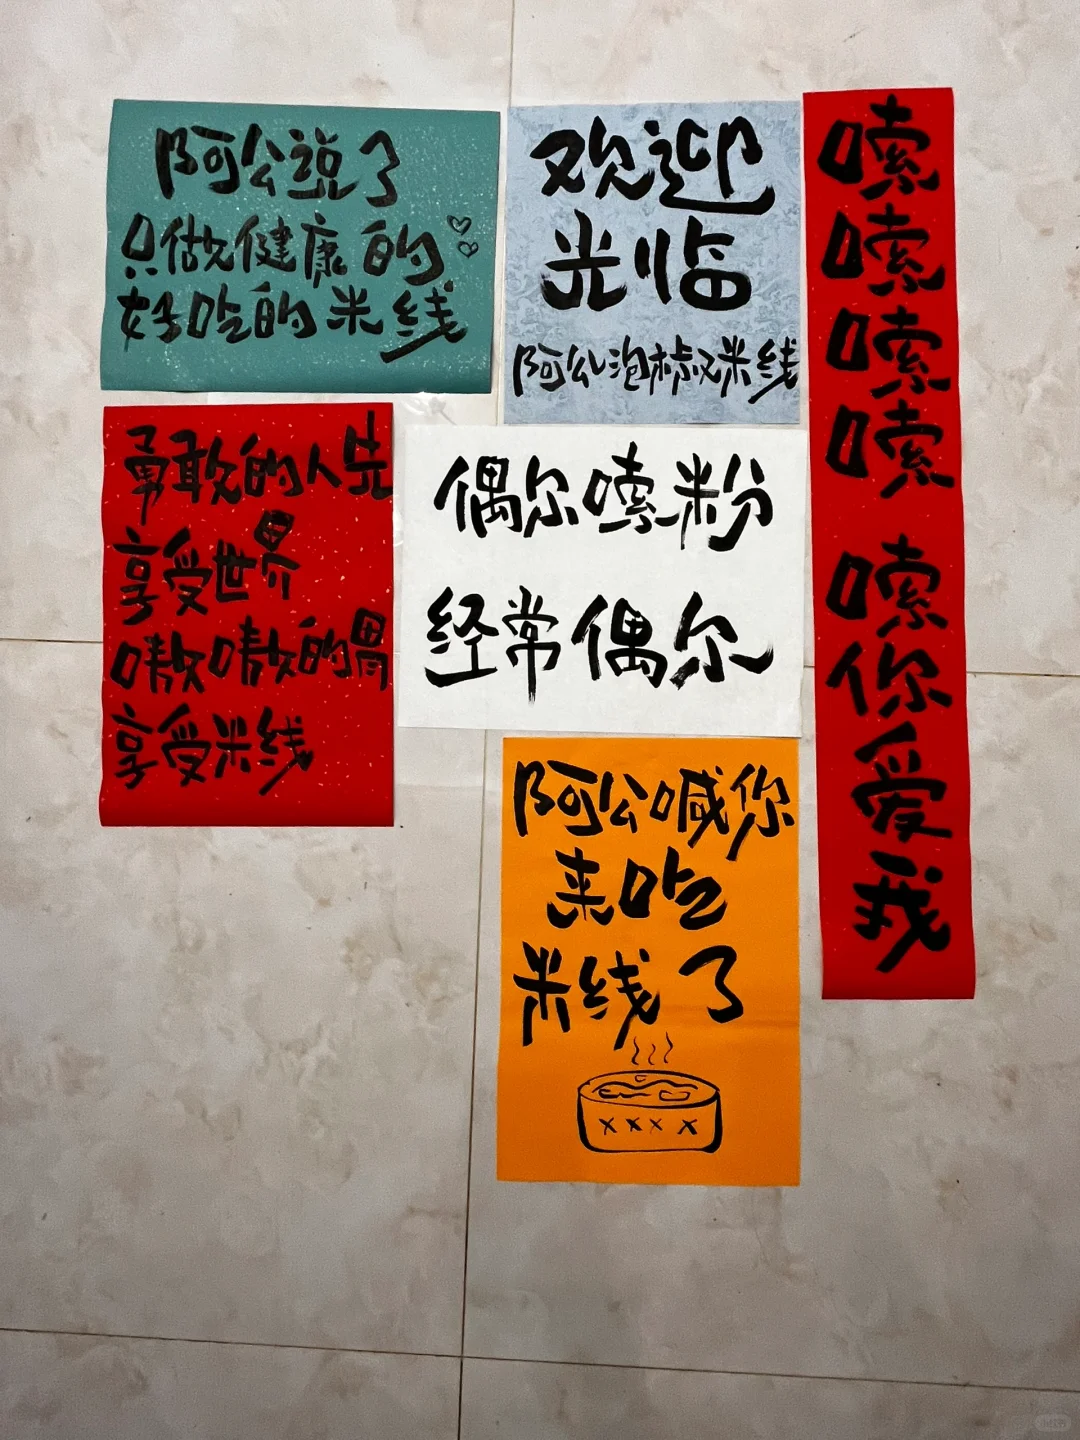 阿公说了
只做健康的
好吃的米线
欢迎
光临
阿公泡椒米线
嗦
嗦
嗦
嗦
嗦
你
爱
我
勇敢的人先
享受世界
嗷嗷的胃
享受米线
偶尔嗦粉
经常偶尔
阿公喊你
来吃
米线了